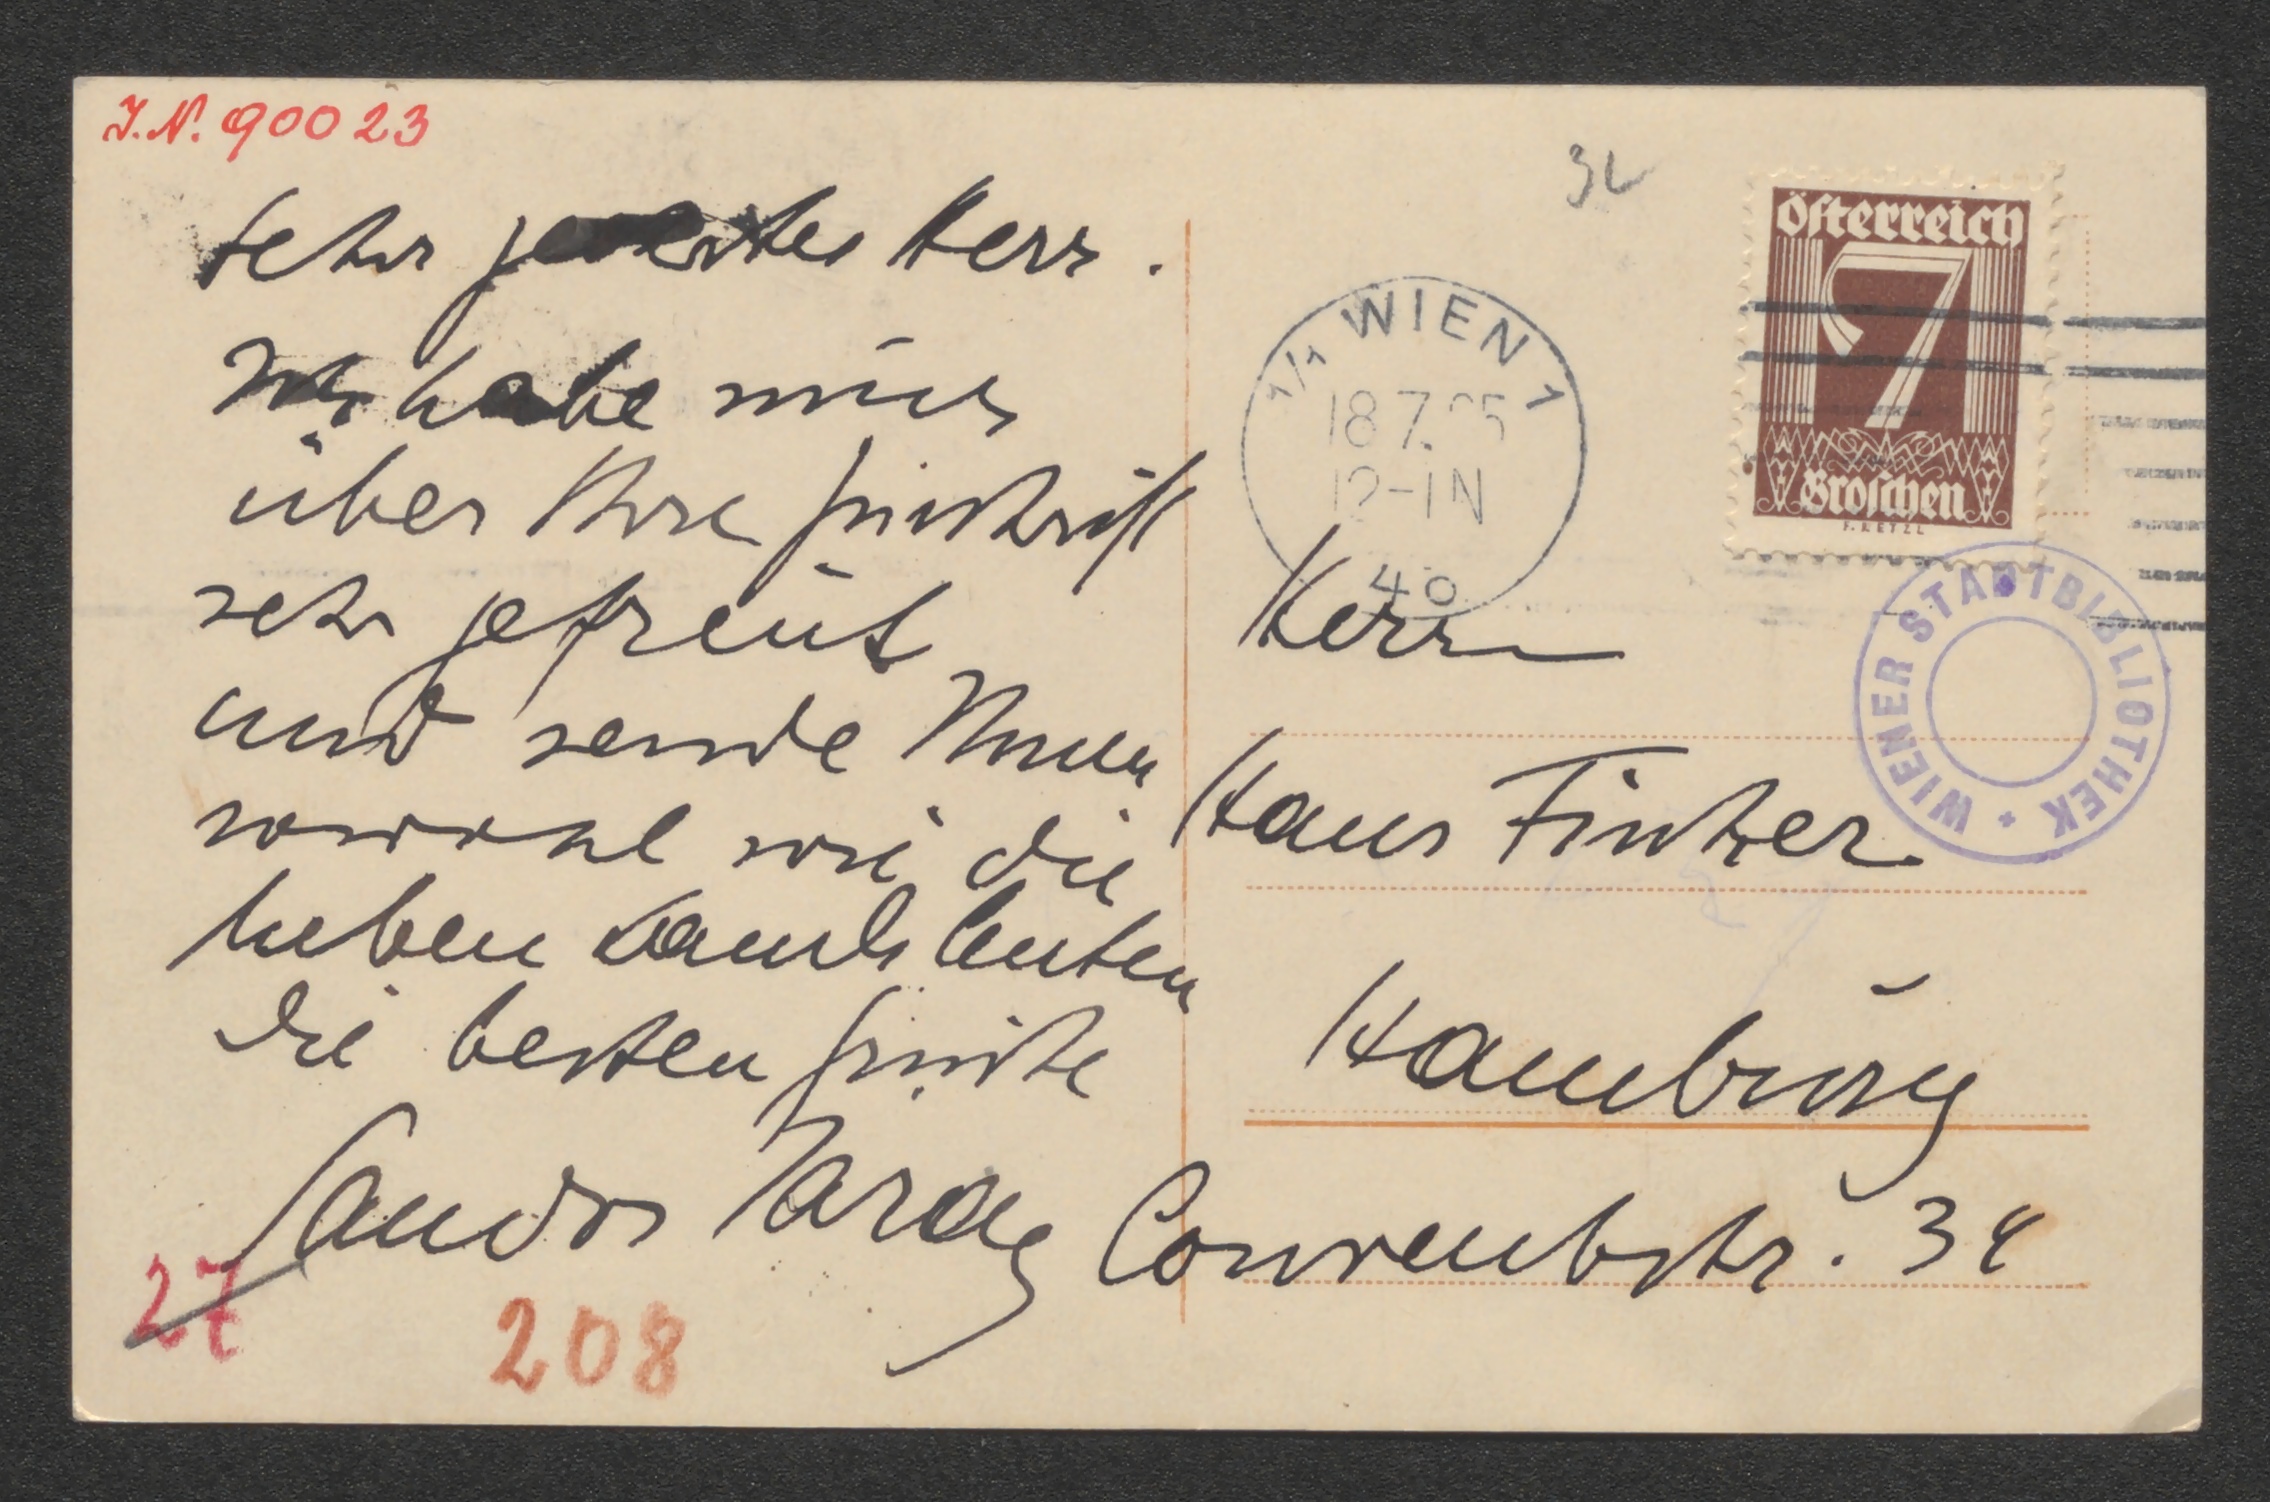 I.N. 90023
Sehr geehrter Herr.
Ich habe mich
über Ihre Zuschrift
sehr gefreut
und sende Ihnen
sowohl wie die
lieben Landsleuten
die besten Grüsse
Sandor Jaray
27
208
32
Österreich
7
Groschen
1/1 WIEN 1
18 7. 25
12-1N
40
WIENER STADTBIBLIOTHEK
Herrn
Hans Fischer
Hamburg
Conventstr. 34